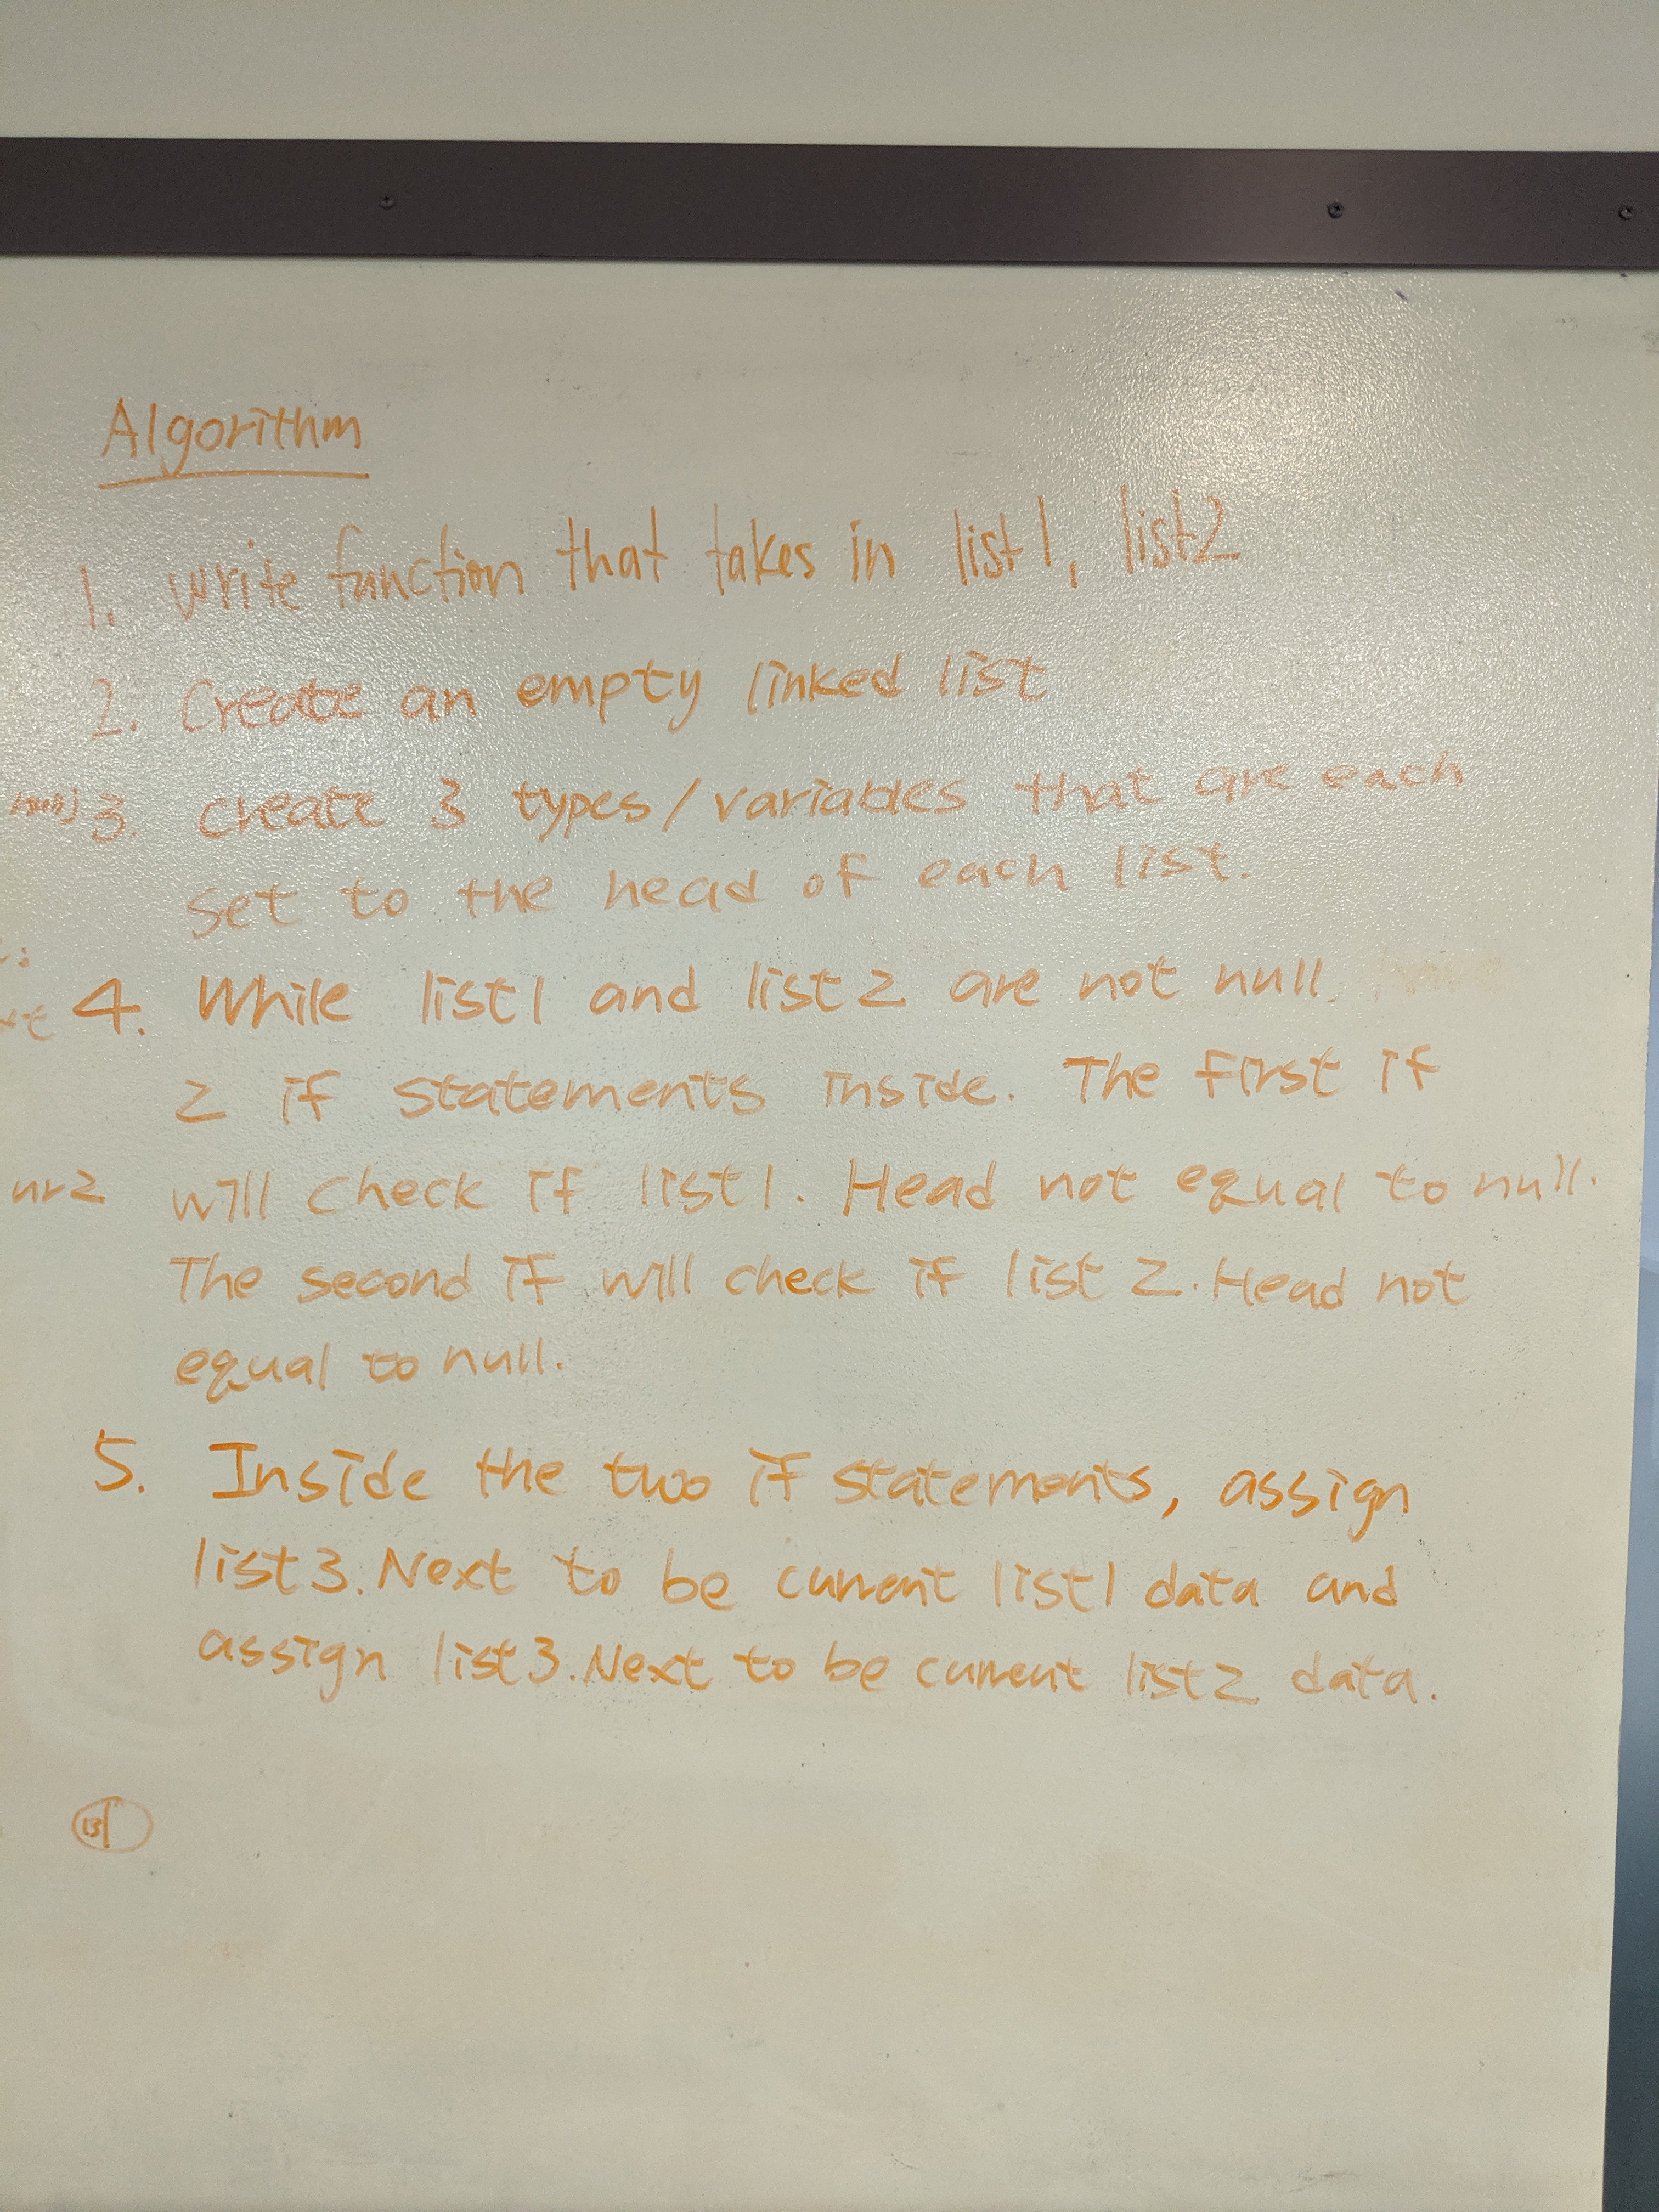 Algorithm
1. Write function that takes in list1, list2
2. Create an empty linked list
3. Create 3 types/variables that are each
set to the head of each list.
4. While list1 and list2 are not null.
2 if statements inside. The first if
will check if list1. Head not equal to null.
The second if will check if list2. Head not
equal to null.
5. Inside the two if statements, assign
list3.Next to be current list1 data and
assign list3.Next to be current list2 data.